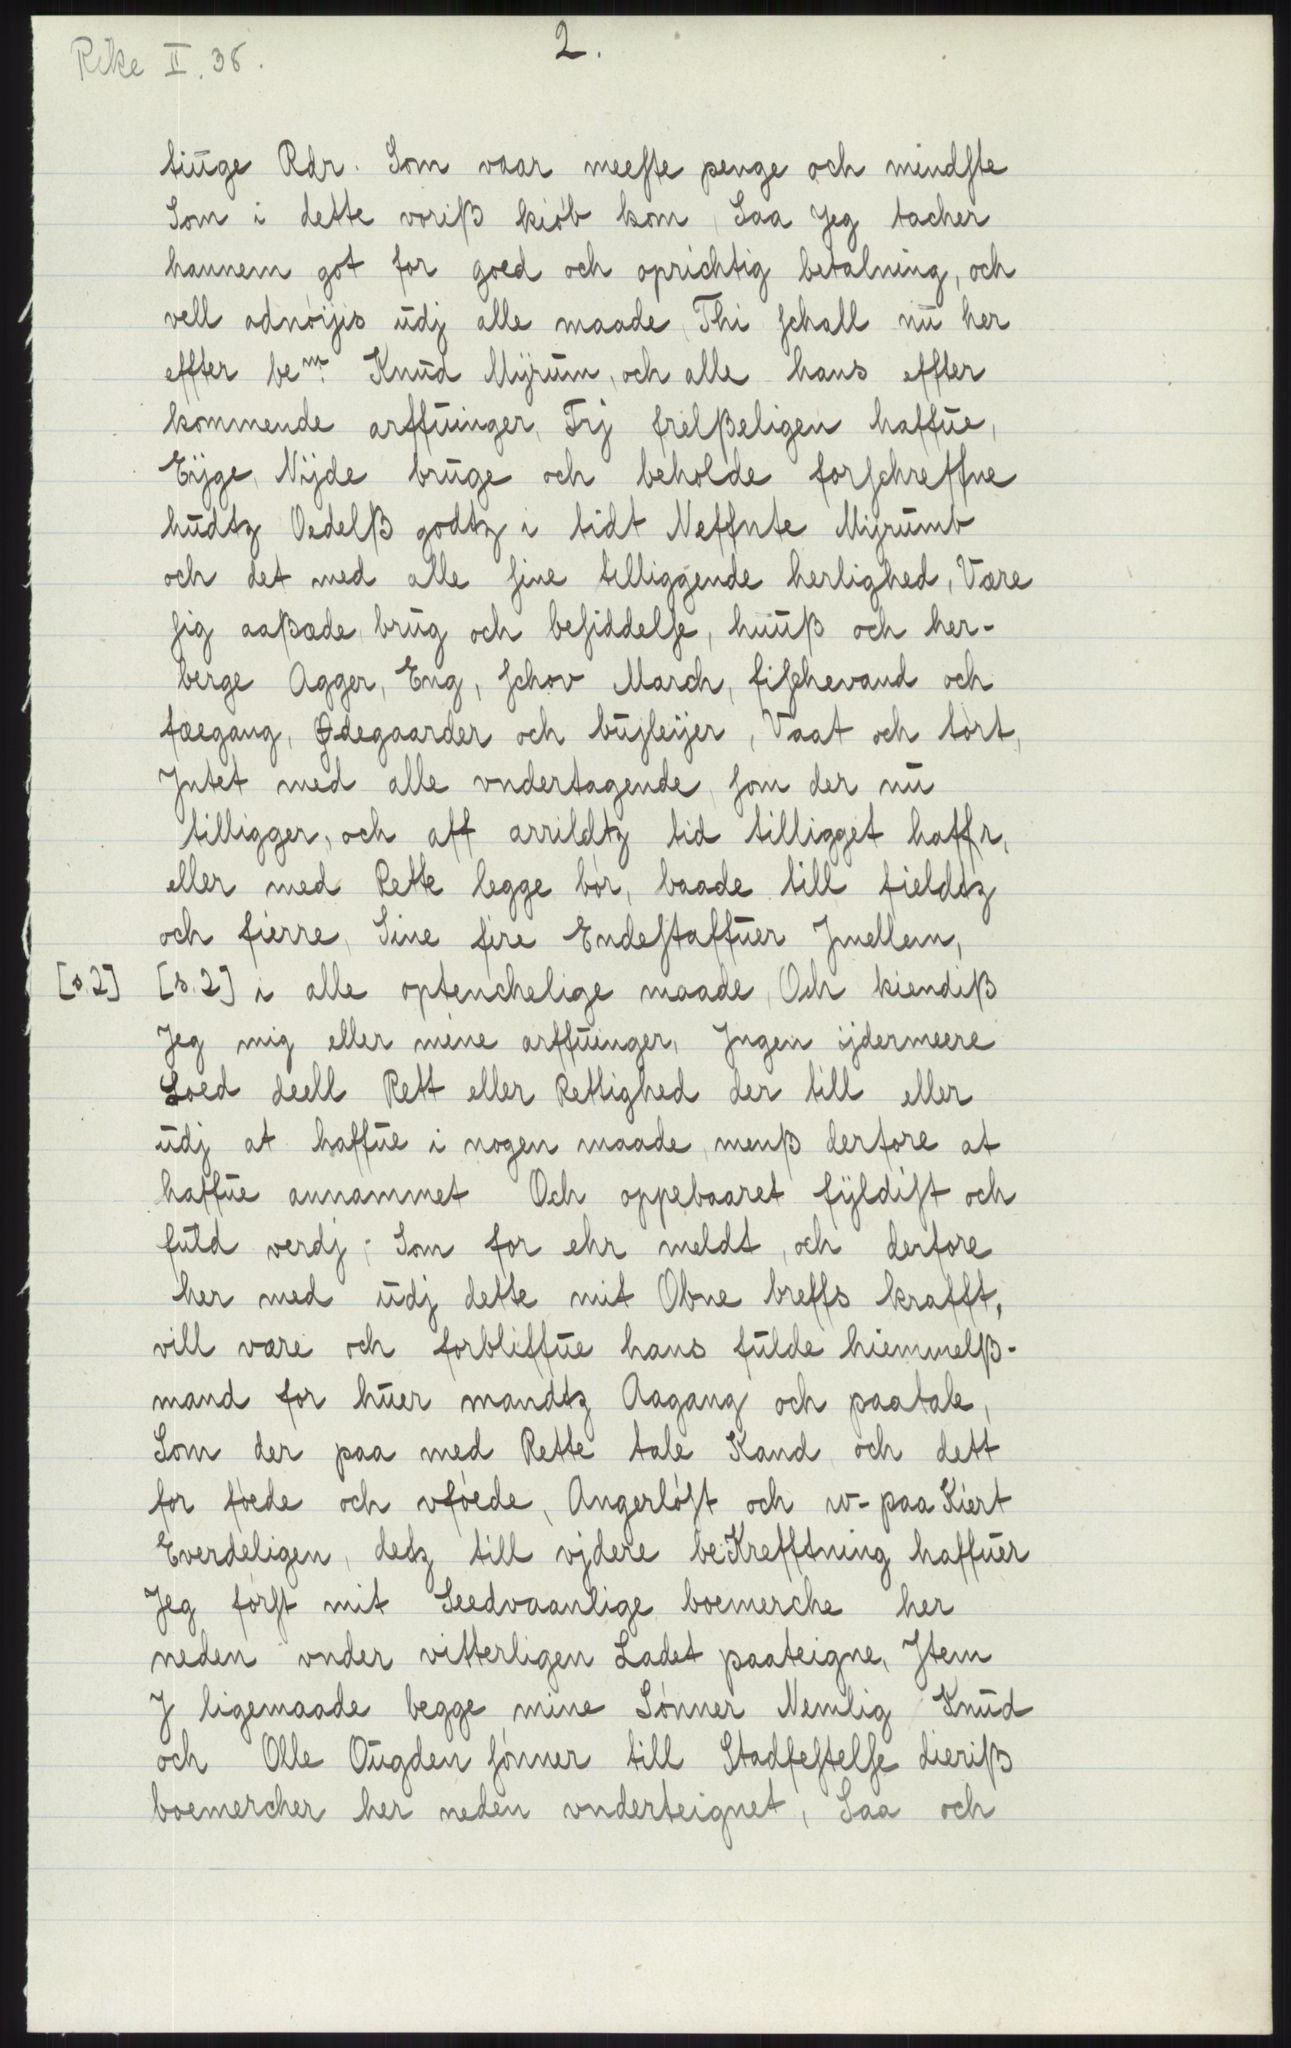 Rike II. 36.
2.
tiuge Rdr. Som vaar meeste penge och mindste
Som i dette voriß kiøb kom, Saa Jeg tacher
hannem got for goed och oprichtig betalning, och
vell adnøijis udj alle maade, Thi schall nu her
effter be<sup>m</sup>. Knud Mÿrum, och alle hans effter
kommende arffuinger, Frj frelßeligen haffue,
Eÿge, Nÿde bruge och beholde forschreffne
hudtz Oedelß godtz i tidt Neffnte Mÿrumb
och det med alle sine tilliggende herlighed, Være
sig aaßæde, brug och besiddelse, huuß och her-
berge Agger, Eng, schov March, fischevand och
fægang, Ødegaarder och buslejer, Vaat och tørt,
Jntet med alle vndertagende, som der nu
tilligger, och aff arrildtz tid tilligget haffr,
eller med Rette legge bør, baade till fieldtz
och fierre, Sine fire Endestaffuer Jmellem,
[s.2] [s.2] i alle optenchelige maade, Och kiendiß
Jeg mig eller mine arffuinger, Jngen ijdermeere
Loed deell Rett eller Rettighed der till eller
udj at haffue i nogen maade, menß derfore at
haffue annammet Och oppebaaret fÿldist och
fuld verdj; Som for ehr meldt, och derfore
her med udj dette mit Obne breffs krafft,
vill være och forbliffue hans fulde hiemmelß-
mand for huer mandtz Aagang och paatale,
Som der paa med Rette tale Kand och dett
for føede och vføede, Angerløst och w-paa Kiert
Everdeligen, detz till vjdere beKrefftning haffuer
Jeg først mit Seedvaanlige boemerche her
neden vnder vitterligen Ladet paateigne, Jtem
J ligemaade begge mine Sønner Nemlig Knud
och Olle Ougden sønner till Stadfestelse dieriß
boemercher her neden vnderteignet, Saa och